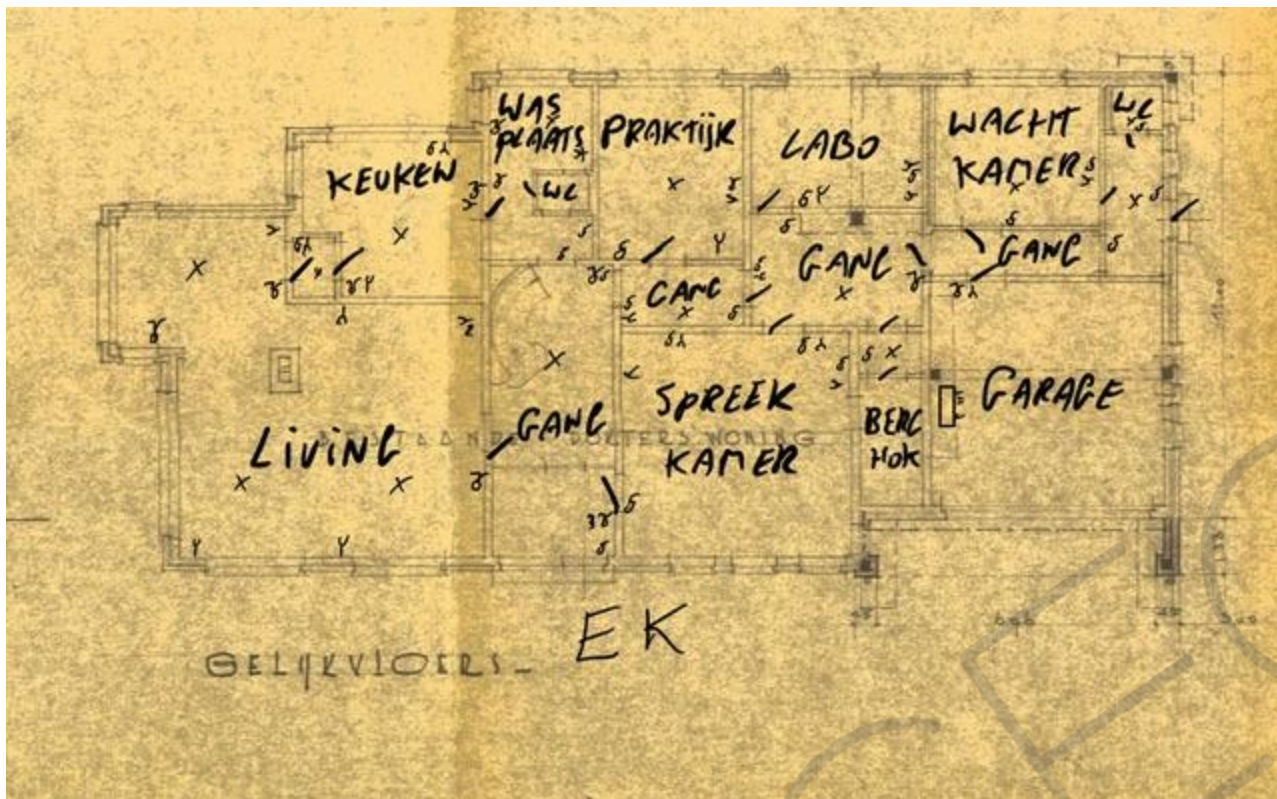 WAS
PLAATS
PRAKTIJK
LABO
WACHT
KAMER
WC
KEUKEN
WC
GANG
GANG
GANG
LIVING
GANG
SPREEK
KAMER
BERG
HOK
GARAGE
DOKTERSWONING
EK
GELIJKVLOERS_